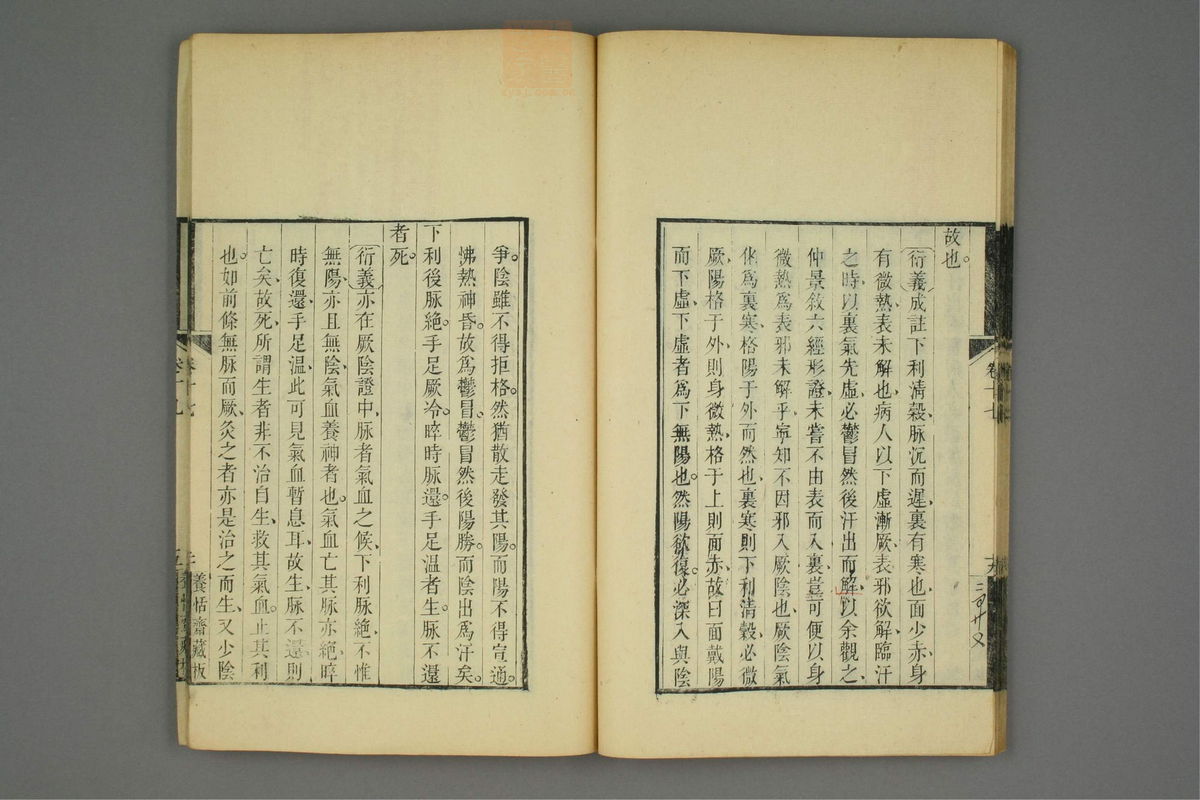 故也。
衍義成註下利清穀、脉沉而遲、裏有寒也、面少赤、身
有微熱、表未解也、病人以下虛漸厥、表邪欲解、臨汗
之時、以裏氣先虛、必鬱冒然後汗出而解、以余觀之、
仲景敘六經形證、未嘗不由表而入裏、豈可便以身
微熱爲表邪未解乎、寧知不因邪入厥陰也、厥陰氣
化爲裏寒、格陽于外而然也、裏寒則下利清穀、必微
厥、陽格于外、則身微熱、格于上則面赤、故曰面戴陽
而下虛、下虛者爲下無陽也。然陽欲復。必深入與陰
爭。陰雖不得拒格。然猶散走發其陽。而陽不得宣通。
怫熱神昏。故爲鬱冒。鬱冒然後陽勝。而陰出爲汗矣。
下利後脉絶。手足厥冷。晬時脉還。手足温者生。脉不還
者死。
衍義亦在厥陰證中、脉者氣血之候、下利脉絶、不惟
無陽、亦且無陰、氣血養神者也。氣血亡其脉亦絶、晬
時復還、手足温、此可見氣血暫息耳、故生、脉不還則
亡矣、故死、所謂生者、非不治自生、救其氣血。止其利
也。如前條無脉而厥、灸之者亦是治之而生、又少陰
卷十七
養恬齋藏板